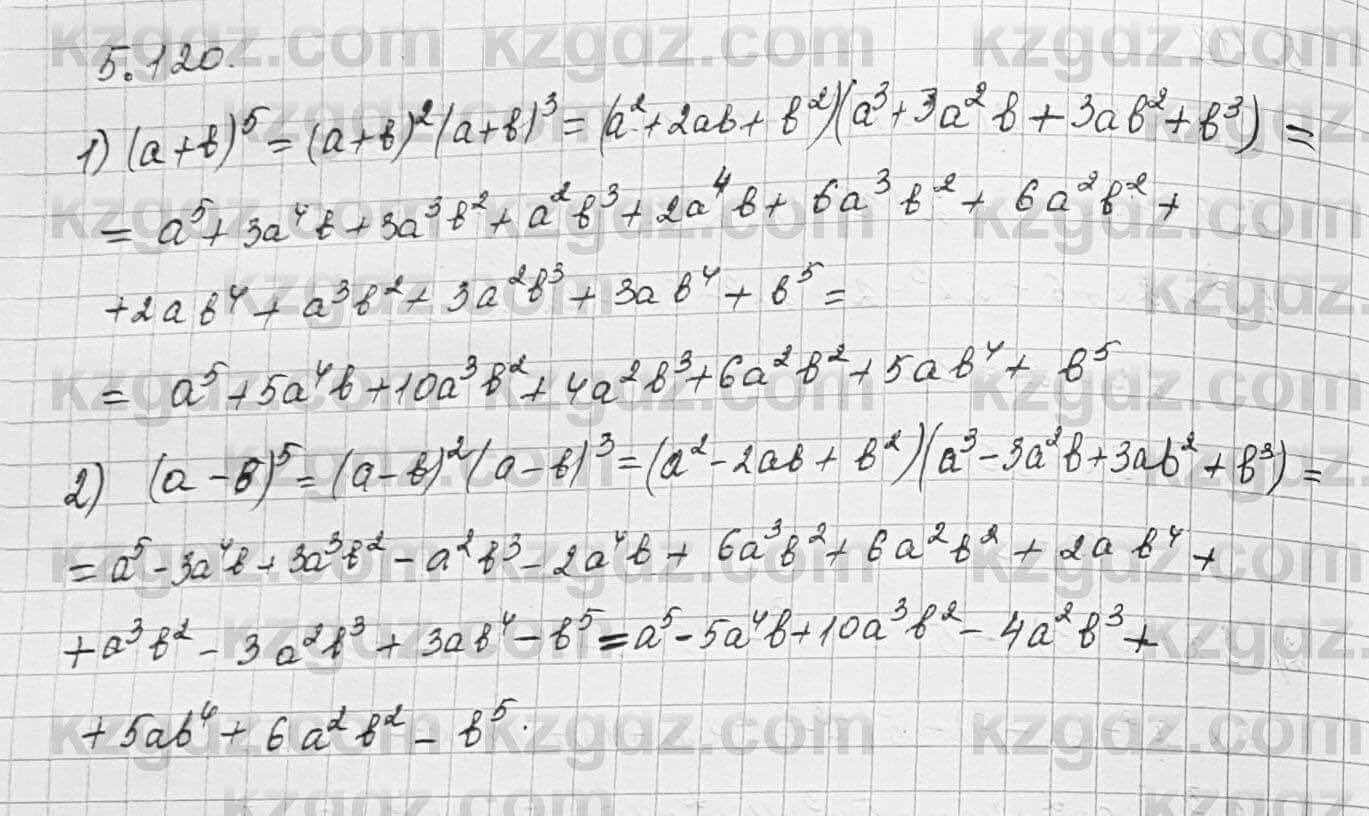 5.120.
1) (a+b)⁵ = (a+b)²(a+b)³ = (a²+2ab+b²)(a³+3a²b+3ab²+b³) =
= a⁵+3a⁴b+3a³b²+a²b³+2a⁴b+6a³b²+6a²b²+
+2ab⁴+a³b²+3a²b³+3ab⁴+b⁵=
= a⁵+5a⁴b+10a³b²+4a²b³+6a²b²+5ab⁴+b⁵
2) (a-b)⁵=(a-b)²(a-b)³=(a²-2ab+b²)(a³-3a²b+3ab²+b³)=
=a⁵-3a⁴b+3a³b²-a²b³-2a⁴b+6a³b²+6a²b²+2ab⁴+
+a³b²-3a²b³+3ab⁴-b⁵=a⁵-5a⁴b+10a³b²-4a²b³+
+5ab⁴+6a²b²-b⁵.
kzgdz.com